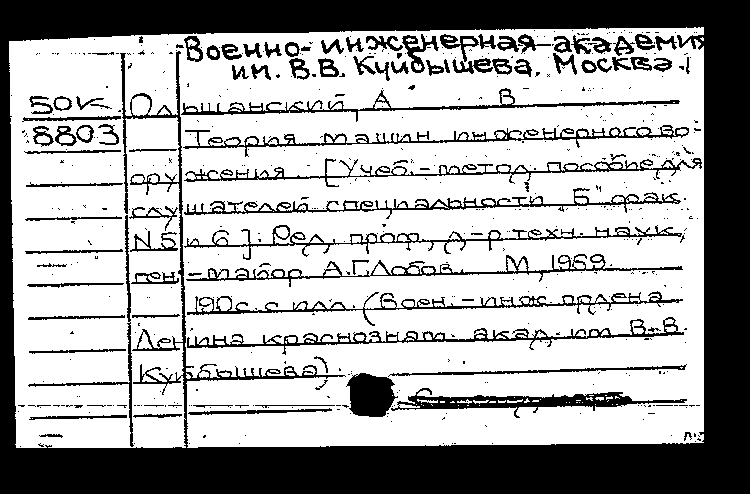 Военно-инженерная академия
им. В.В. Куйбышева. Москва.
50К Ольшанский, А В
8803 Теория машин инженерного во-
оружения. [Учеб.-метод. пособие для
слушателей специальности "Б" фак.
N 5 и 6]. Ред. проф., д-р техн. наук,
ген.-майор А.Г. Лобов. М., 1959.
190с. с илл. (Воен.-инж. ордена
Ленина краснознам. акад. им. В.В.
Куйбышева).